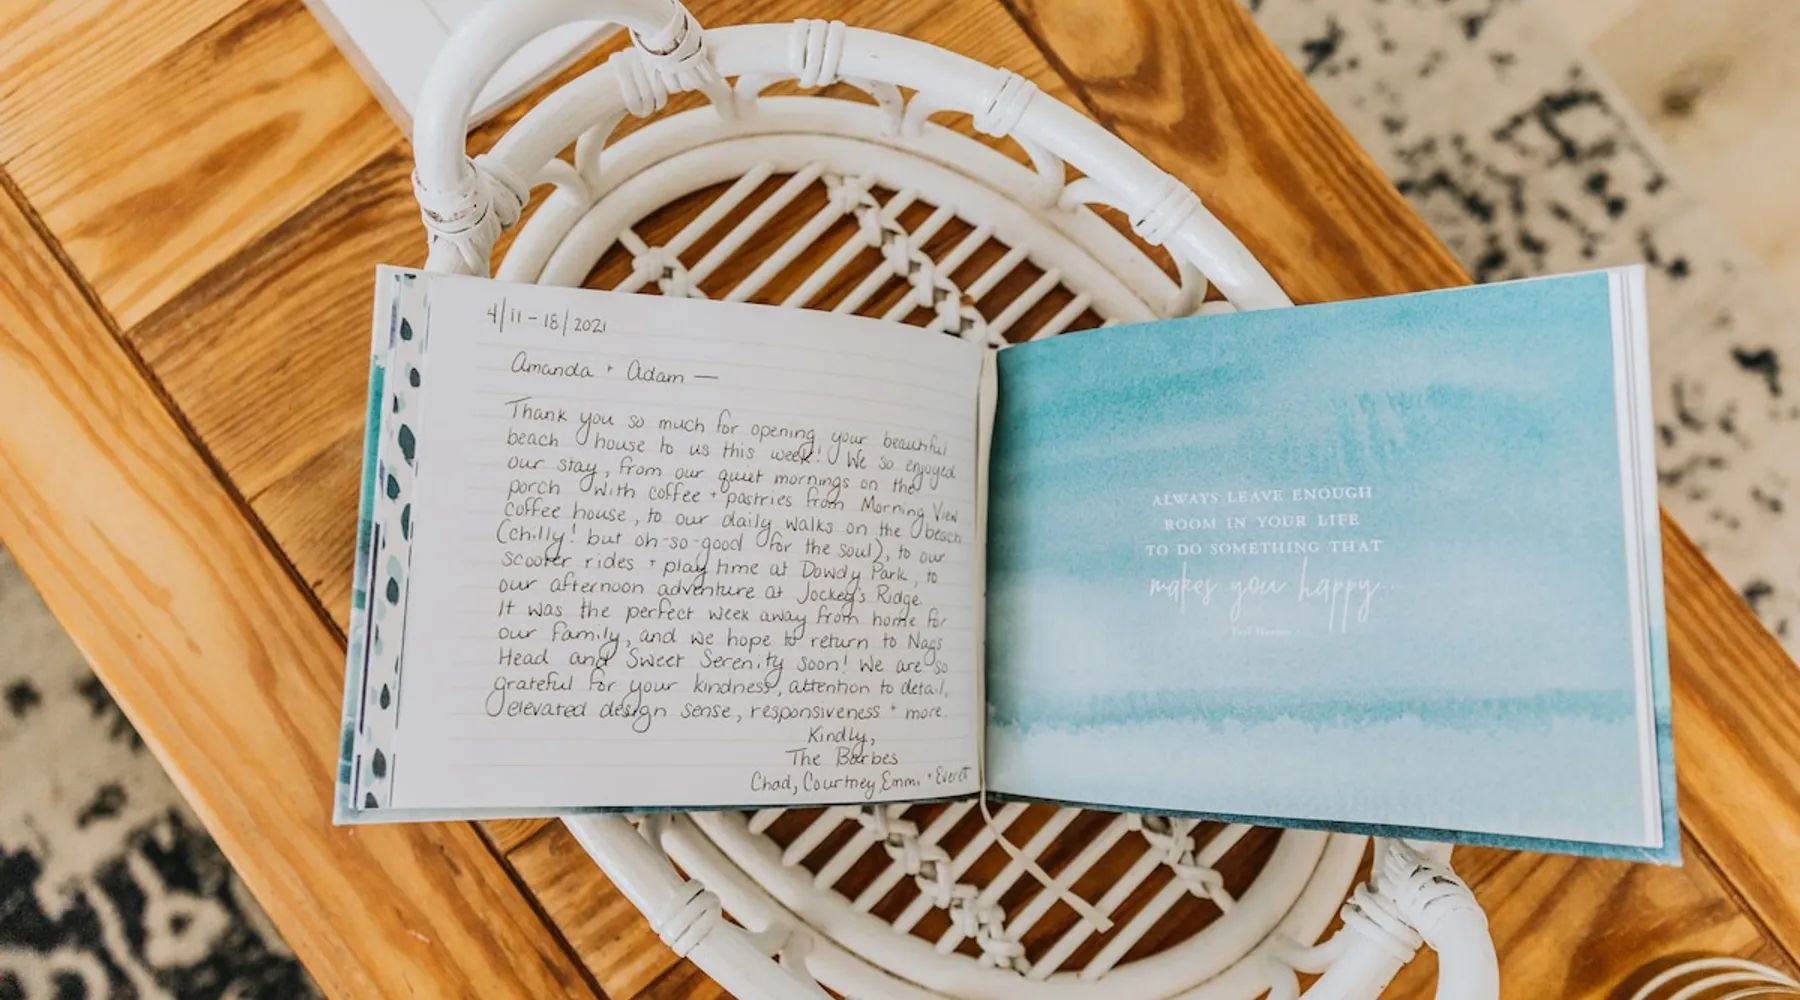 4/11-18/2021
Amanda + Adam —
Thank you so much for opening your beautiful
beach house to us this week! We so enjoyed
our stay, from our quiet mornings on the
porch with coffee + pastries from Morning View
coffee house, to our daily walks on the beach
(chilly! but oh-so-good for the soul), to our
scooter rides + play time at Dowdy Park, to
our afternoon adventure at Jockey's Ridge.
It was the perfect week away from home for
our family, and we hope to return to Nags
Head and Sweet Serenity soon! We are so
grateful for your kindness, attention to detail,
elevated design sense, responsiveness + more.
Kindly,
The Barbes
Chad, Courtney, Emm. + Everett
ALWAYS LEAVE ENOUGH
ROOM IN YOUR LIFE
TO DO SOMETHING THAT
makes you happy...